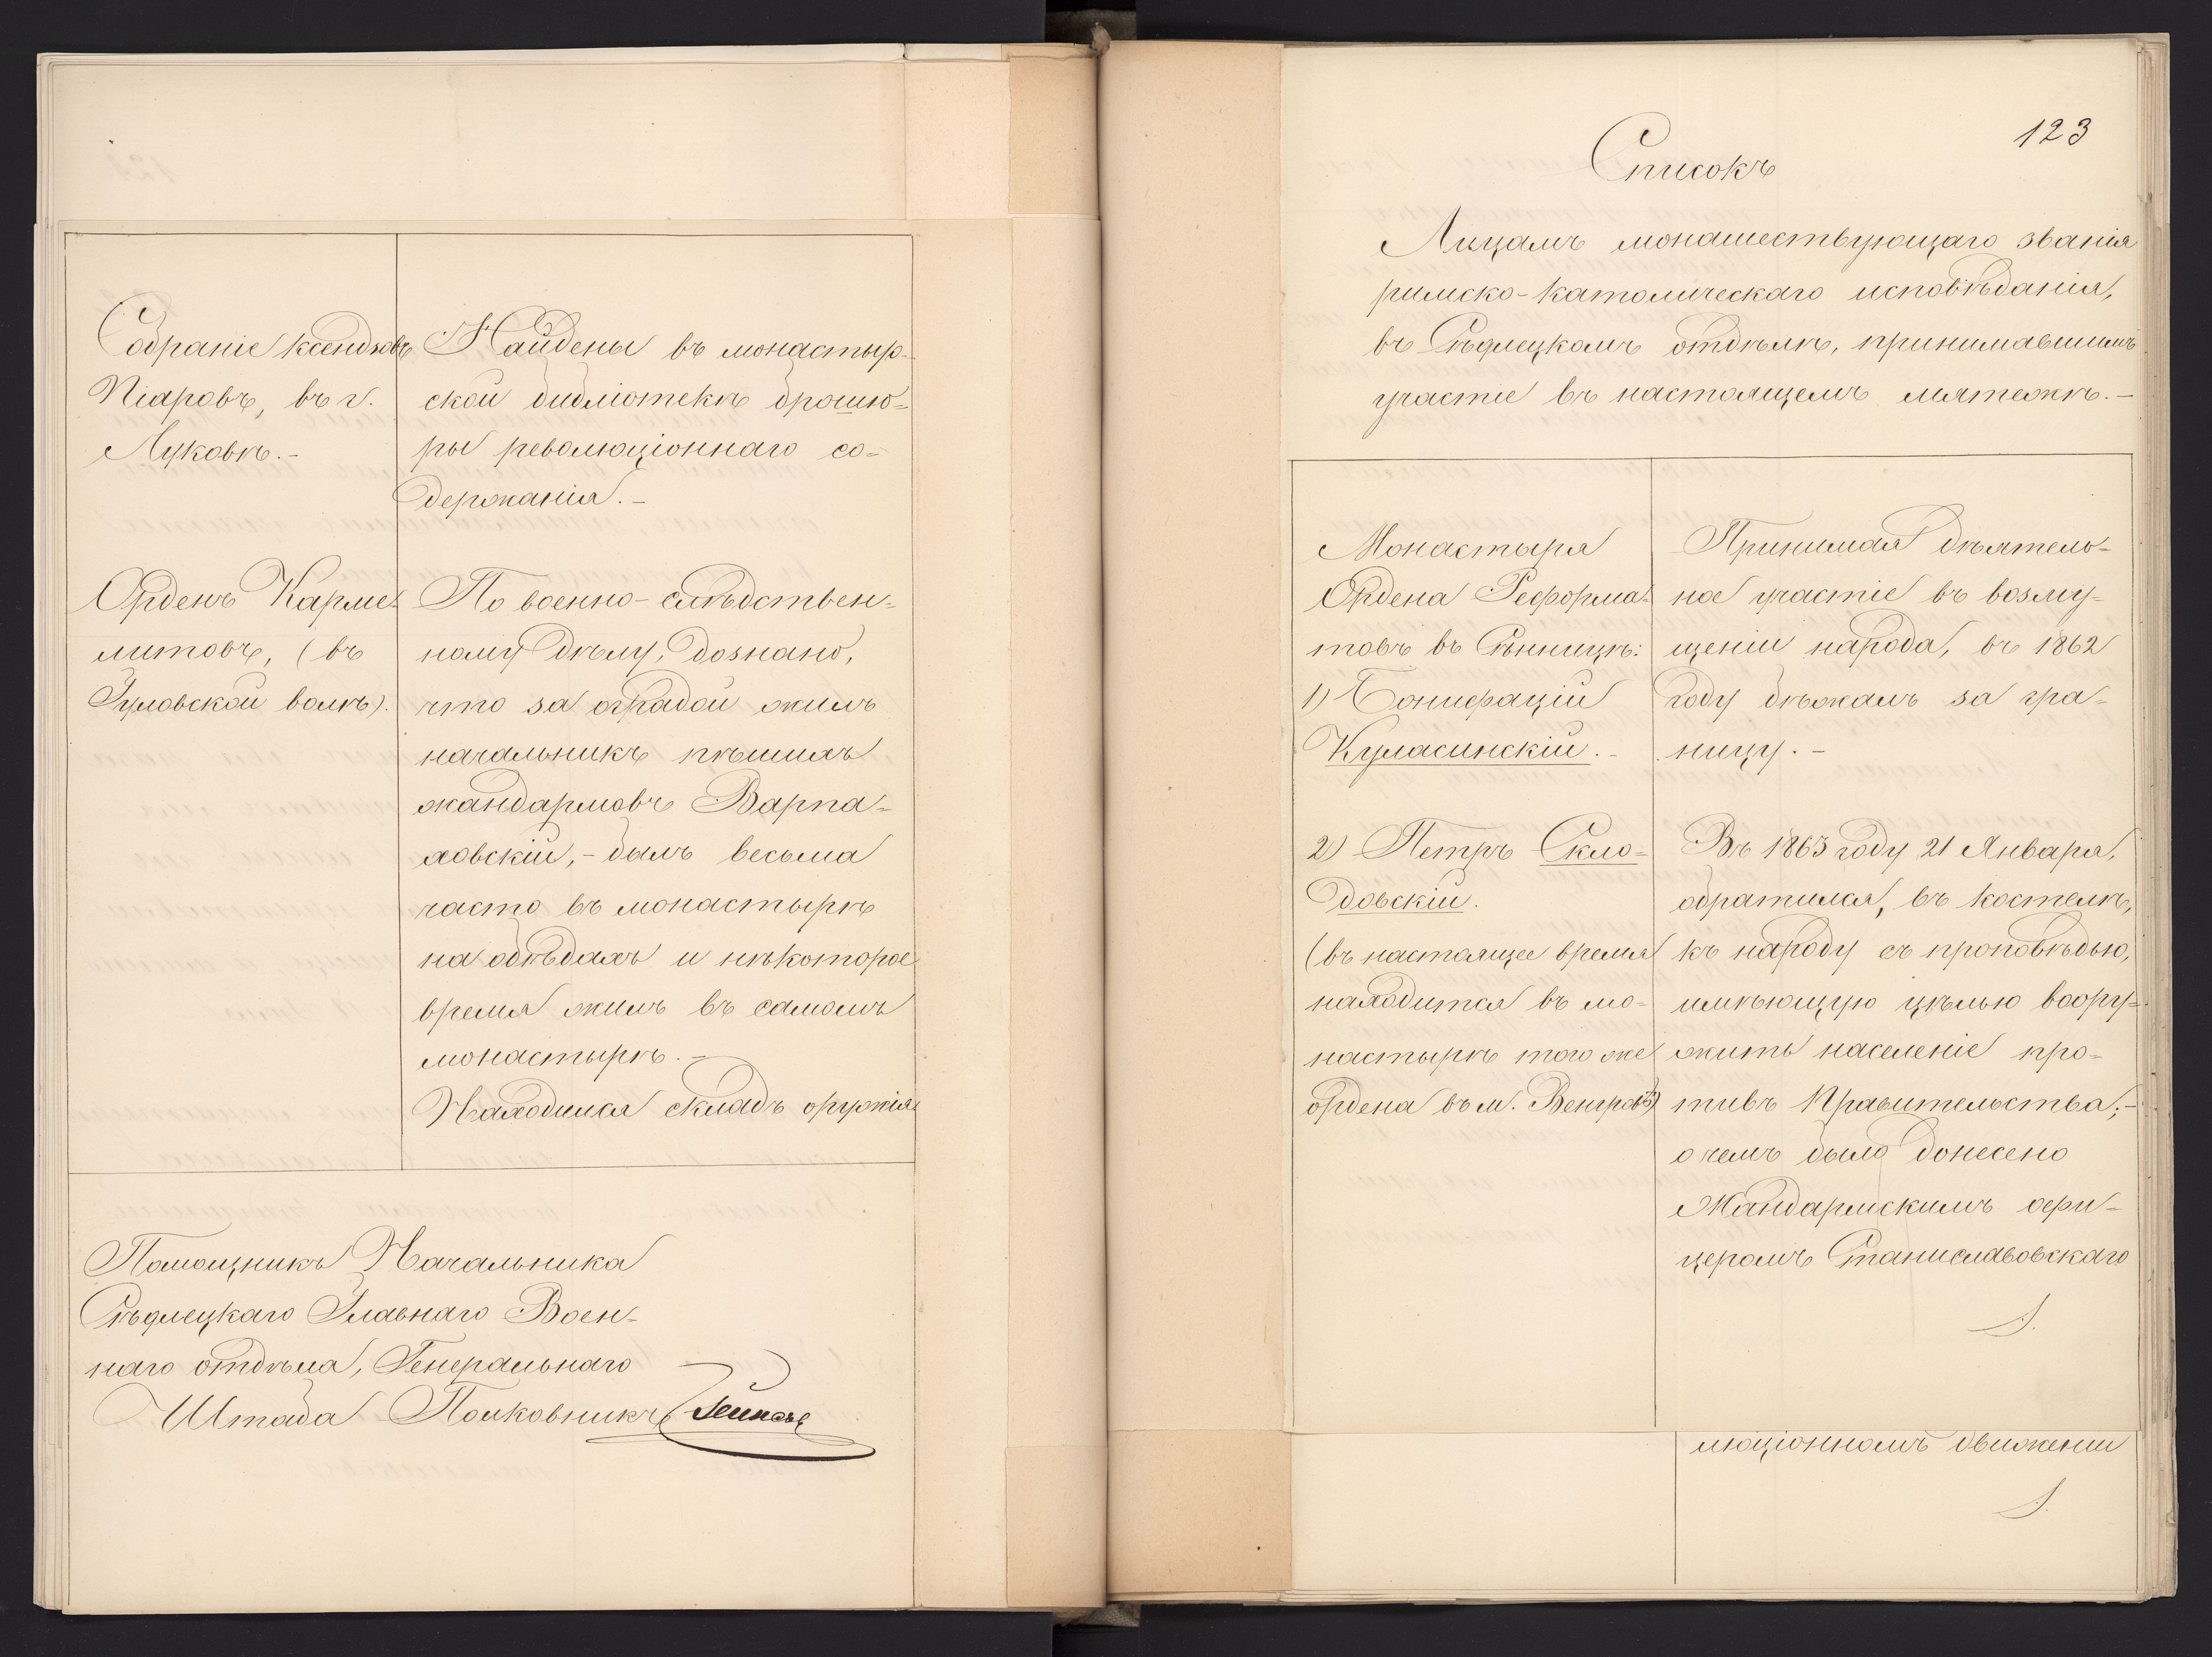 Собраніе ксендзовъ
Піаровъ, въ г.
Луковѣ.-
Найдены въ монастыр-
ской библіотекѣ брошю-
ры революціоннаго со-
держанія.-
Орденъ Карме-
литовъ, (въ
Гуловской волѣ).
По военно-слѣдствен-
ному дѣлу, дознано,
что за оградой жилъ
начальникъ пѣшихъ
жандармовъ Варпа-
ховскій,- былъ весьма
часто въ монастырѣ
на обѣдахъ и нѣкоторое
время жилъ въ самомъ
монастырѣ.-
Находился складъ оружія.
Помощникъ Начальника
Сѣдлецкаго Главнаго Воен-
наго отдѣла, Генеральнаго
Штаба Полковникъ
123
Списокъ
Лицамъ монашествующаго званія
римско-католическаго исповѣданія,
въ Сѣдлецкомъ отдѣлѣ, принимавшимъ
участіе въ настоящемъ мятежѣ.-
Монастыря
Ордена Реформа-
товъ въ Сѣнницѣ:
1) Бонифацій
Куласинскій.-
Принимая дѣятель-
ное участіе въ возму-
щеніи народа, въ 1862
году бѣжалъ за гра-
ницу.-
2) Петръ Скло-
довскій.
(въ настоящее время
находится въ мо-
настырѣ того же
ордена въ м. Венгровѣ)
Въ 1863 году 21 Января,
обратился, въ костелѣ,
къ народу съ проповѣдью,
имѣющую цѣлью воору-
жить населеніе про-
тивъ Правительства;-
о чемъ было донесено
Жандармскимъ офи-
церомъ Станиславовскаго
люціонномъ движеніи